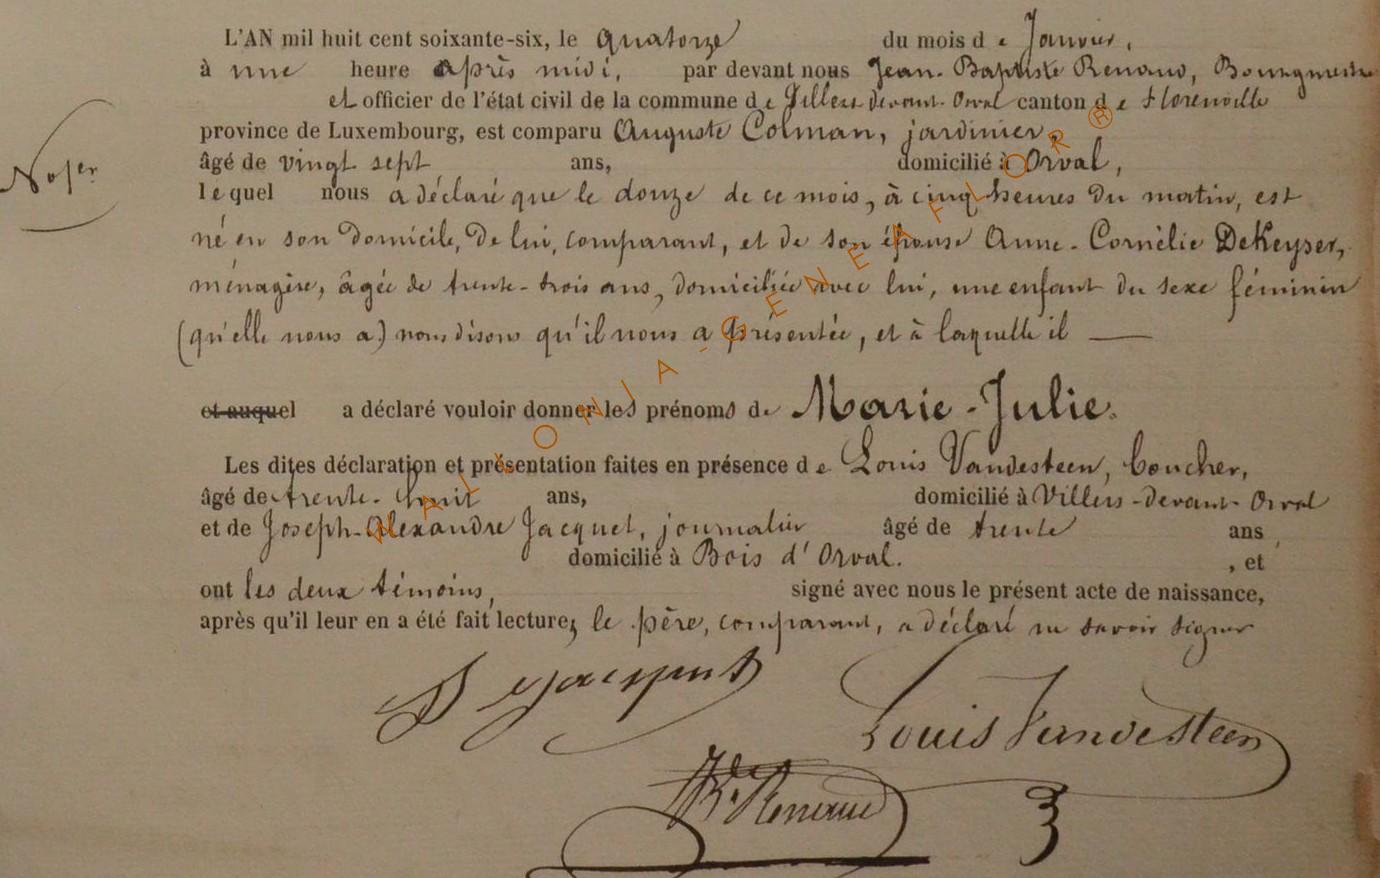 L'AN mil huit cent soixante-six, le quatorze du mois de Janvier,
à une heure après midi, par devant nous Jean-Baptiste Renaud, Bourgmestre
et officier de l'état civil de la commune de Villers devant-Orval canton de Florenville
province de Luxembourg, est comparu Auguste Colman, jardinier,
âgé de vingt sept ans, domicilié à Orval,
lequel nous a déclaré que le douze de ce mois, à cinq heures du matin, est
né en son domicile, de lui, comparant, et de son épouse Anne-Cornélie DeKeyser,
ménagère, âgée de trente-trois ans, domiciliée avec lui, une enfant du sexe féminin
(qu'elle nous a) nous disons qu'il nous a présentée, et à laquelle il —
et auquel a déclaré vouloir donner les prénoms de Marie-Julie.
Les dites déclaration et présentation faites en présence de Louis Vandesteen,
âgé de trente-huit ans, domicilié à Villers-devant-Orval
et de Joseph-Alexandre Jacquet, journalier âgé de trente ans,
domicilié à Bois d'Orval. , et
ont les deux témoins, signé avec nous le présent acte de naissance,
après qu'il leur en a été fait lecture; le père, comparant, a déclaré ne savoir signer
Louis Vandesteen
JBte Renaud
WALLONIA-GENEAFLOR®